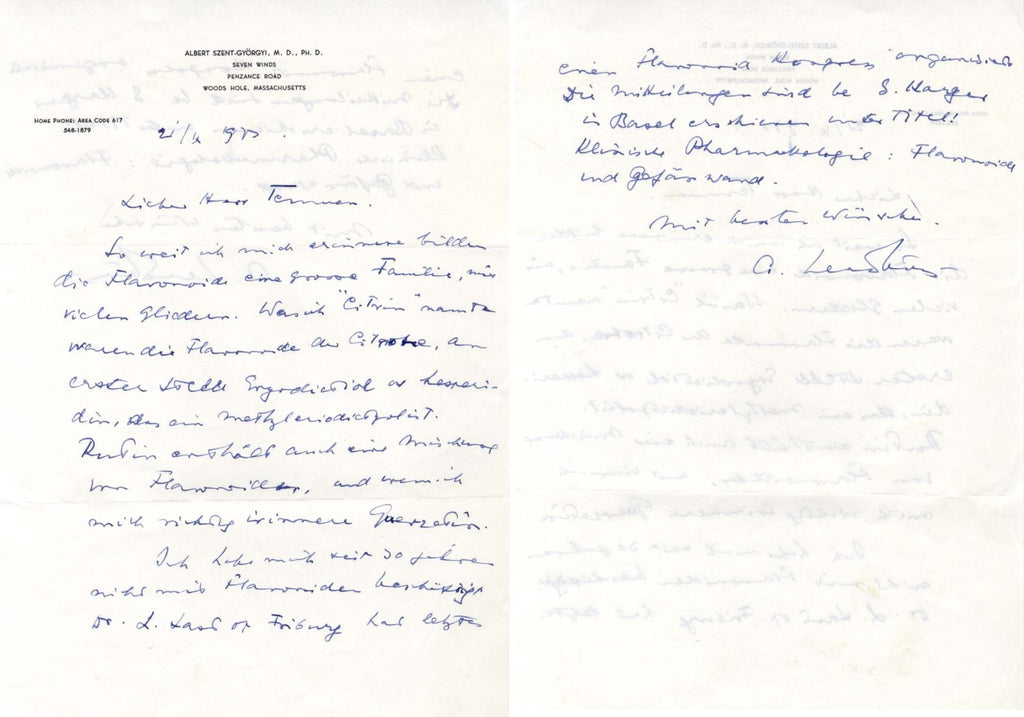 ALBERT SZENT-GYÖRGYI, M. D., PH. D.
SEVEN WINDS
PENZANCE ROAD
WOODS HOLE, MASSACHUSETTS
HOME PHONE: AREA CODE 617
548-1879
Lieber Herr
So weit ich mich erinnere bilden
die Flavonoide eine grosse Familie, mit
vielen Gliedern. Was ich "Citrin" nannte
waren die Flavonoide der Citrone, an
erster Stelle Eryodictiol or hesperi-
din, das ein
Rutin enthält auch eine Mischung
von Flavonoiden, und wenn ich
mich richtig erinnere Quercetin.
Ich habe mich seit 30 Jahren
nicht mit Flavonoiden beschäftigt
Dr. L. of Friburg hat letztes
einen Flavonoid Kongress organisiert
Die Mitteilungen sind be S. Karger
in Basel erschienen unter Titel:
Klinische Pharmakologie: Flavonoide
und Gefässwand.
Mit besten Wünschen.
A.